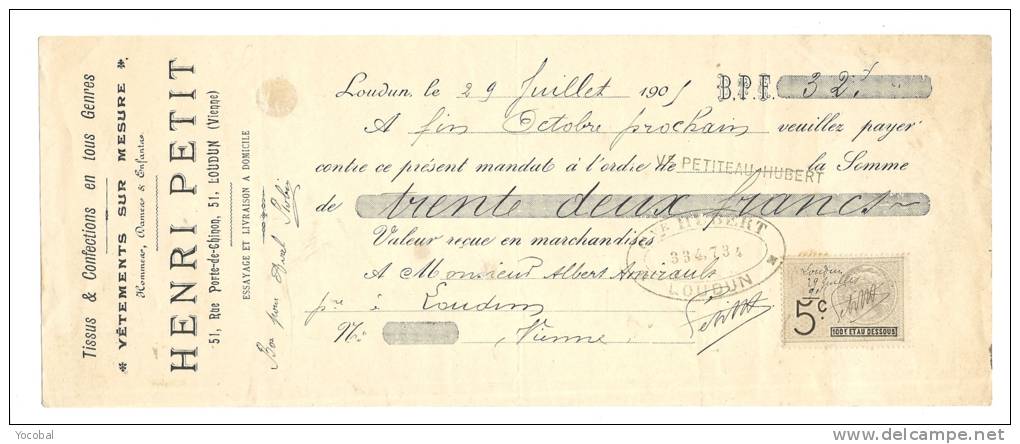 Tissus & Confections en tous Genres
VÊTEMENTS SUR MESURE
Hommes, Dames & Enfants
HENRI PETIT
51, Rue Porte-de-Chinon, 51, LOUDUN (Vienne)
ESSAYAGE ET LIVRAISON A DOMICILE
Bon pour Aval
Loudun, le 29 Juillet 1905 B.P.F. 32 f
A fin Octobre prochain veuillez payer
contre ce présent mandat à l'ordre de Vve PETITEAU-HUBERT la Somme
de trente deux francs
Valeur reçue en marchandises
A Monsieur Albert Amirault
à Loudun
No Vienne
HUBERT
334.734
LOUDUN
Petit
Loudun
29 Juillet
Petit
5c
100f ET AU DESSOUS
Yocobal
www.delcampe.net